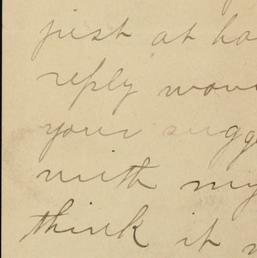 just at ho
reply wou
your sugg
with my
think it